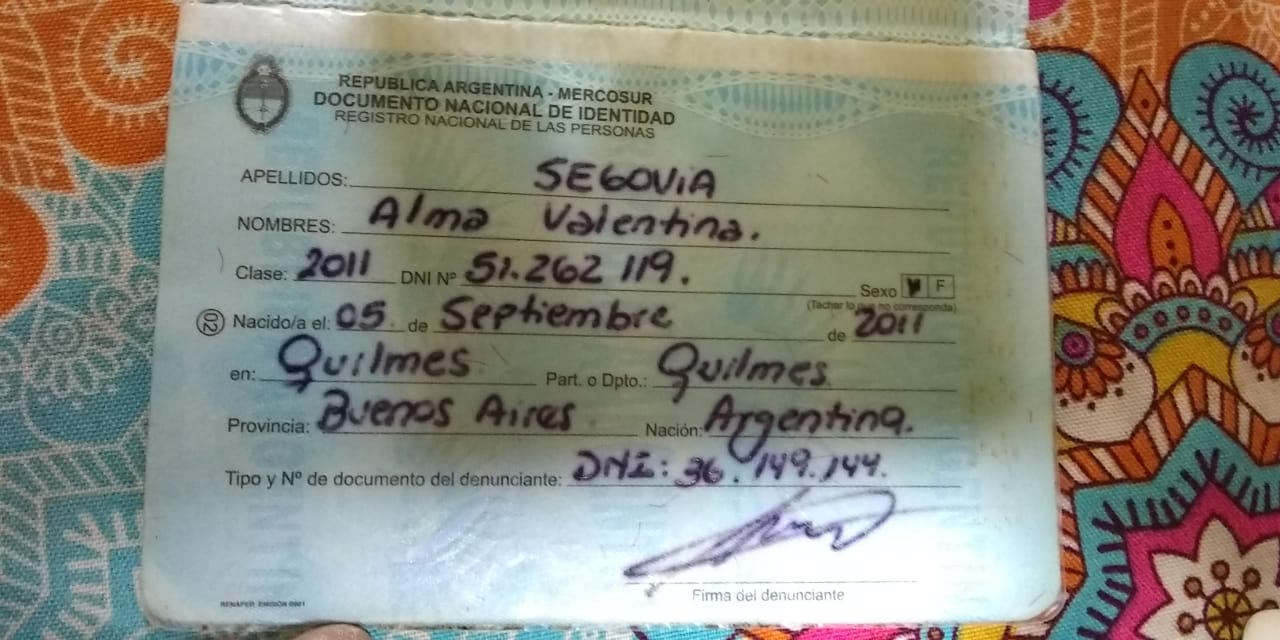 REPUBLICA ARGENTINA - MERCOSUR
DOCUMENTO NACIONAL DE IDENTIDAD
REGISTRO NACIONAL DE LAS PERSONAS
APELLIDOS: SEGOVIA
NOMBRES: Alma Valentina.
Clase: 2011 DNI Nº 51.262 119. Sexo F
(Tachar lo que no corresponda)
02 Nacido/a el: 05 de Septiembre de 2011
en: Quilmes Part. o Dpto.: Quilmes
Provincia: Buenos Aires Nación: Argentina.
Tipo y Nº de documento del denunciante: DNI: 36.149.144.
Firma del denunciante
RENAPER EMISIÓN